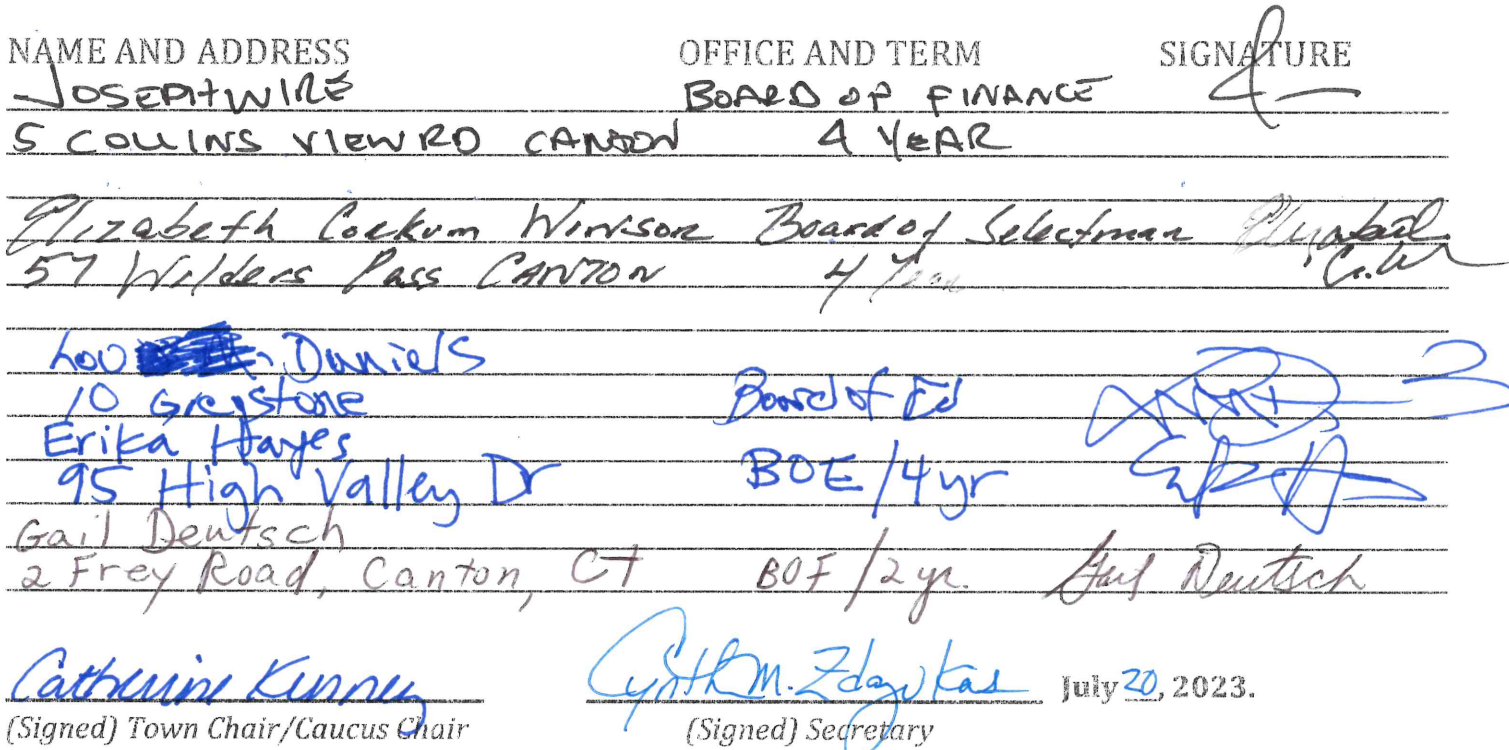 NAME AND ADDRESS OFFICE AND TERM SIGNATURE
JOSEPH WIRE BOARD OF FINANCE
5 COLLINS VIEW RD CANTON 4 YEAR
Elizabeth Cockum Winsor Board of Selectman Elizabeth
57 Wilders Pass CANTON 4 Year
Lou Daniels
10 Greystone Board of Ed
Erika Hayes
95 High Valley Dr BOE/4yr
Gail Deutsch
2 Frey Road, Canton, CT BOF/2yr. Gail Deutsch
Catherine Kenney Cynth M. Zdazukas July 20, 2023.
(Signed) Town Chair/Caucus Chair (Signed) Secretary